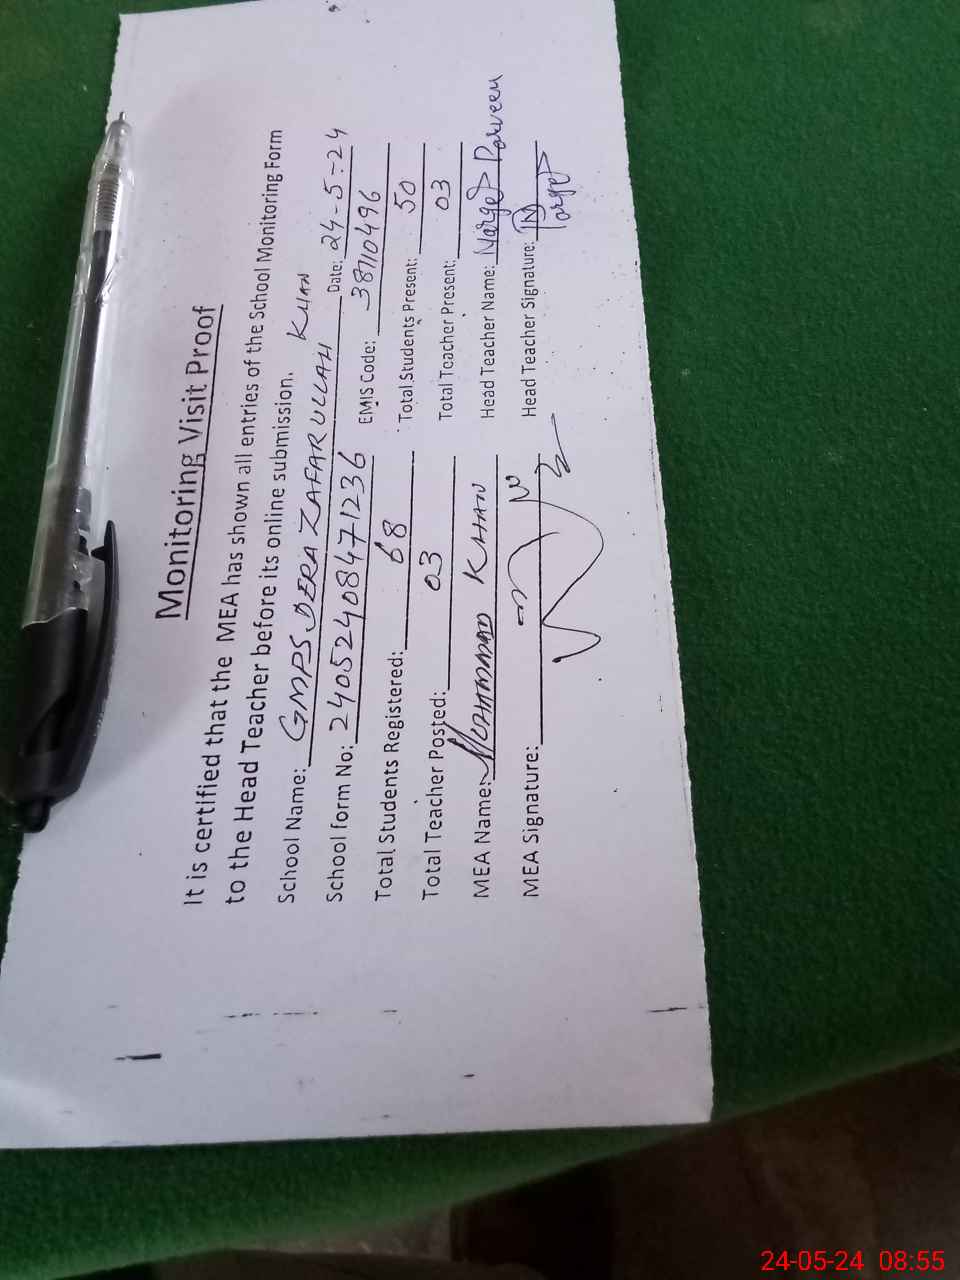 Monitoring Visit Proof
It is certified that the MEA has shown all entries of the School Monitoring Form
to the Head Teacher before its online submission.
School Name: GMPS DERA ZAFARULLAH KHAN
School form No: 24052408471236 Date: 24-5-24
Total Students Registered: 68 EMIS Code: 38110496
Total Teacher Posted: 03 Total Students Present: 50
MEA Name: MOHAMMAD KHAN Total Teacher Present: 03
MEA Signature: Head Teacher Name: Narges Parveen
Head Teacher Signature:
24-05-24 08:55